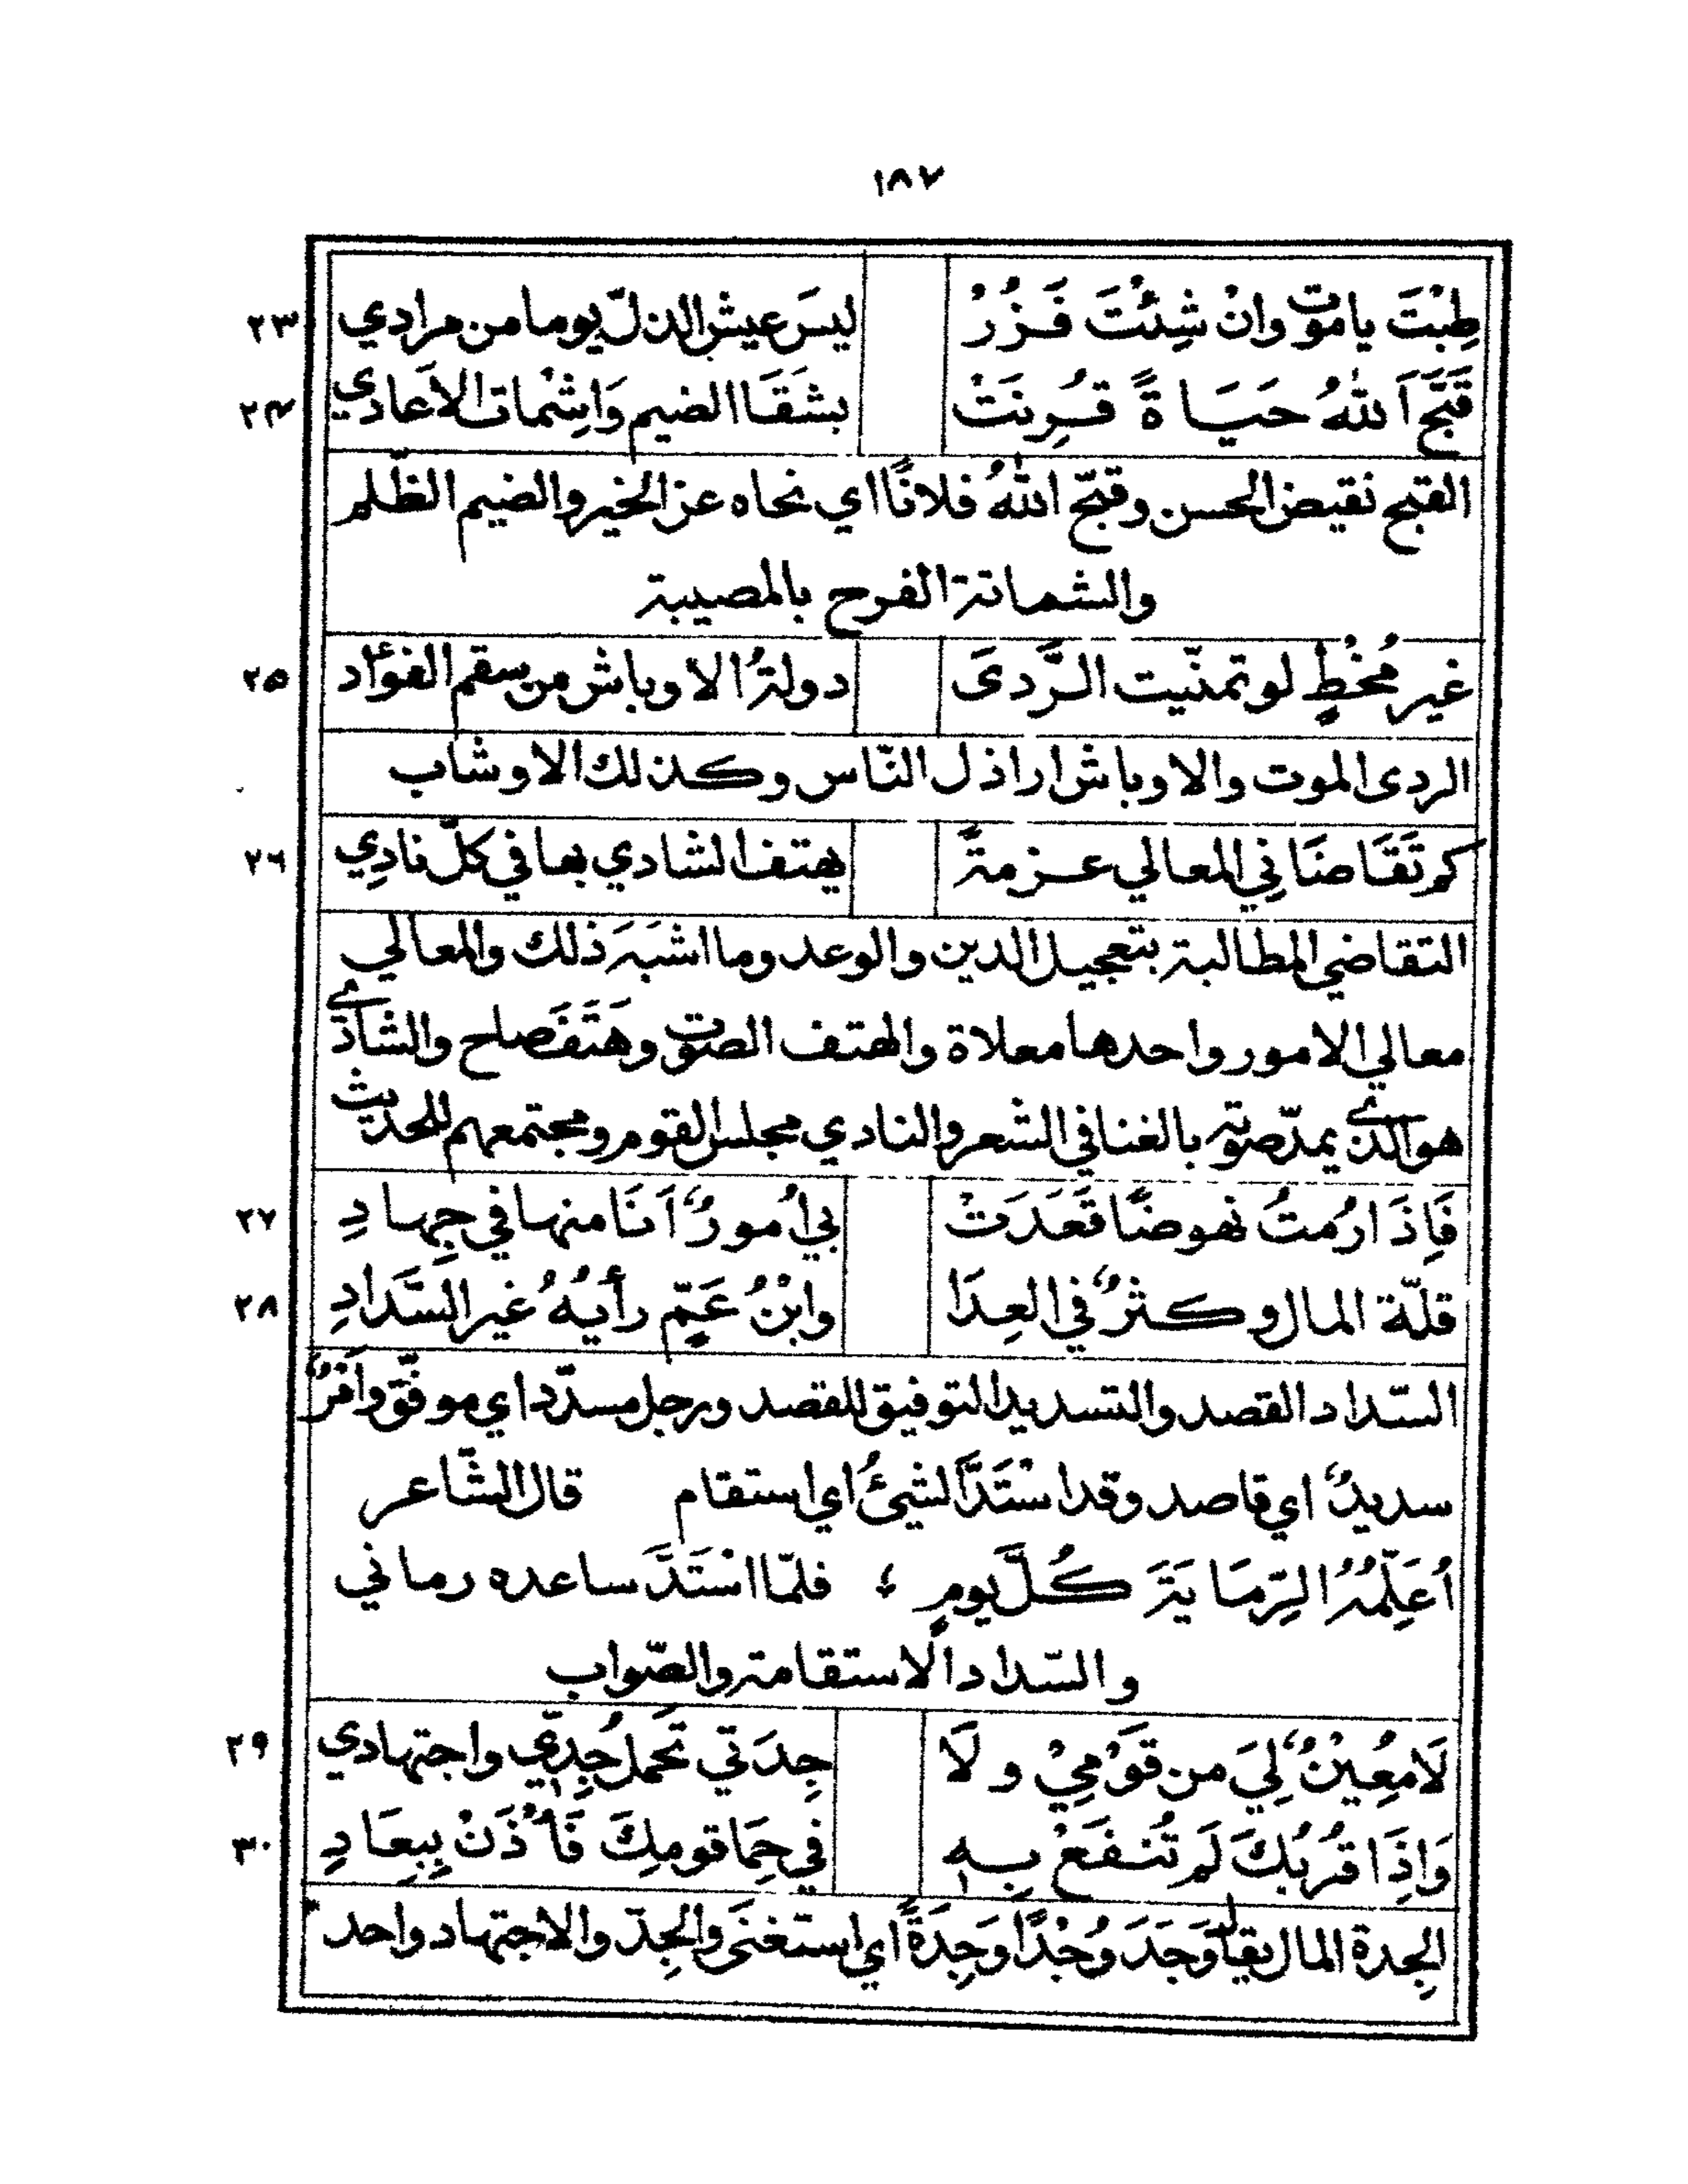 ١٨٧
طِبْتَ ياموت وانْ شِئْتَ فَزُرْ ليسَ عيش الذلّ يوما من مرادي ٢٣
قَبَّحَ اَللهُ حَيَاةً قُرِنَتْ بشَقَا الضيم وَاشِمْات الاَعادي ٢٤
القبح نقيض الحسن وقبّح اللهُ فلانًا اي نحاه عن الخير والضيم الظّلم
والشماتة الفرح بالمصيبة
غير مُخْطٍ لو تمنّيت الرَّدىَ دولةُ الاوباش من سقم الفؤاد ٢٥
الردى الموت والاوباش اراذل النّاس وكذلك الاوشاب
كم تَقَاضَانِي المعالي عزمةً يهتف الشادي بها في كلّ نادِي ٢٦
التقاضي المطالبة بتعجيل الدين والوعد وما اشبَهَ ذلك والمعالي
معالي الامور واحدها معلاة والهتف الصوت وهَتَفَ صلح والشاذي
هو الذي يمدّ صوته بالغنا في الشعر والنادي مجلس القوم ومجتمعهم للحديث
فَاِذَا رُمتُ نهوضًا قَعَدَتْ بي اُمورٌ اَنَا منها في جِهادِ ٢٧
قلّة المال وكثرٌ في العِدَا وابْنُ عَمٍّ رأيُهُ غير السَّدادِ ٢٨
السّداد القصد والتسديد التوفيق للقصد ورجل مسدّد اي موفّق وامرٌ
سديدٌ اي قاصد وقد اسْتَدَّ الشيئُ اي استقام قال الشّاعر
اُعَلِّمُهُ الرِّمَايَةَ كُلَّ يومٍ ؛ فلمّا اسْتَدَّ ساعده رماني
والسّداد الاستقامة والصّواب
لَا مُعِيْنٌ لِيَ من قَوْمِيْ ولَا جِدَتي تَحمل جِدِّي واجتهادي ٢٩
وَاِذَا قُرْبُكَ لَم تُنفَعْ بِهِ في حِمَا قومِكَ فَأْذَنْ بِبِعَادِ ٣٠
الجِدة المال يقال وَجَدَ وُجْدًا وَجِدَةً اي استغنَى والجِدّ والاجتهاد واحد